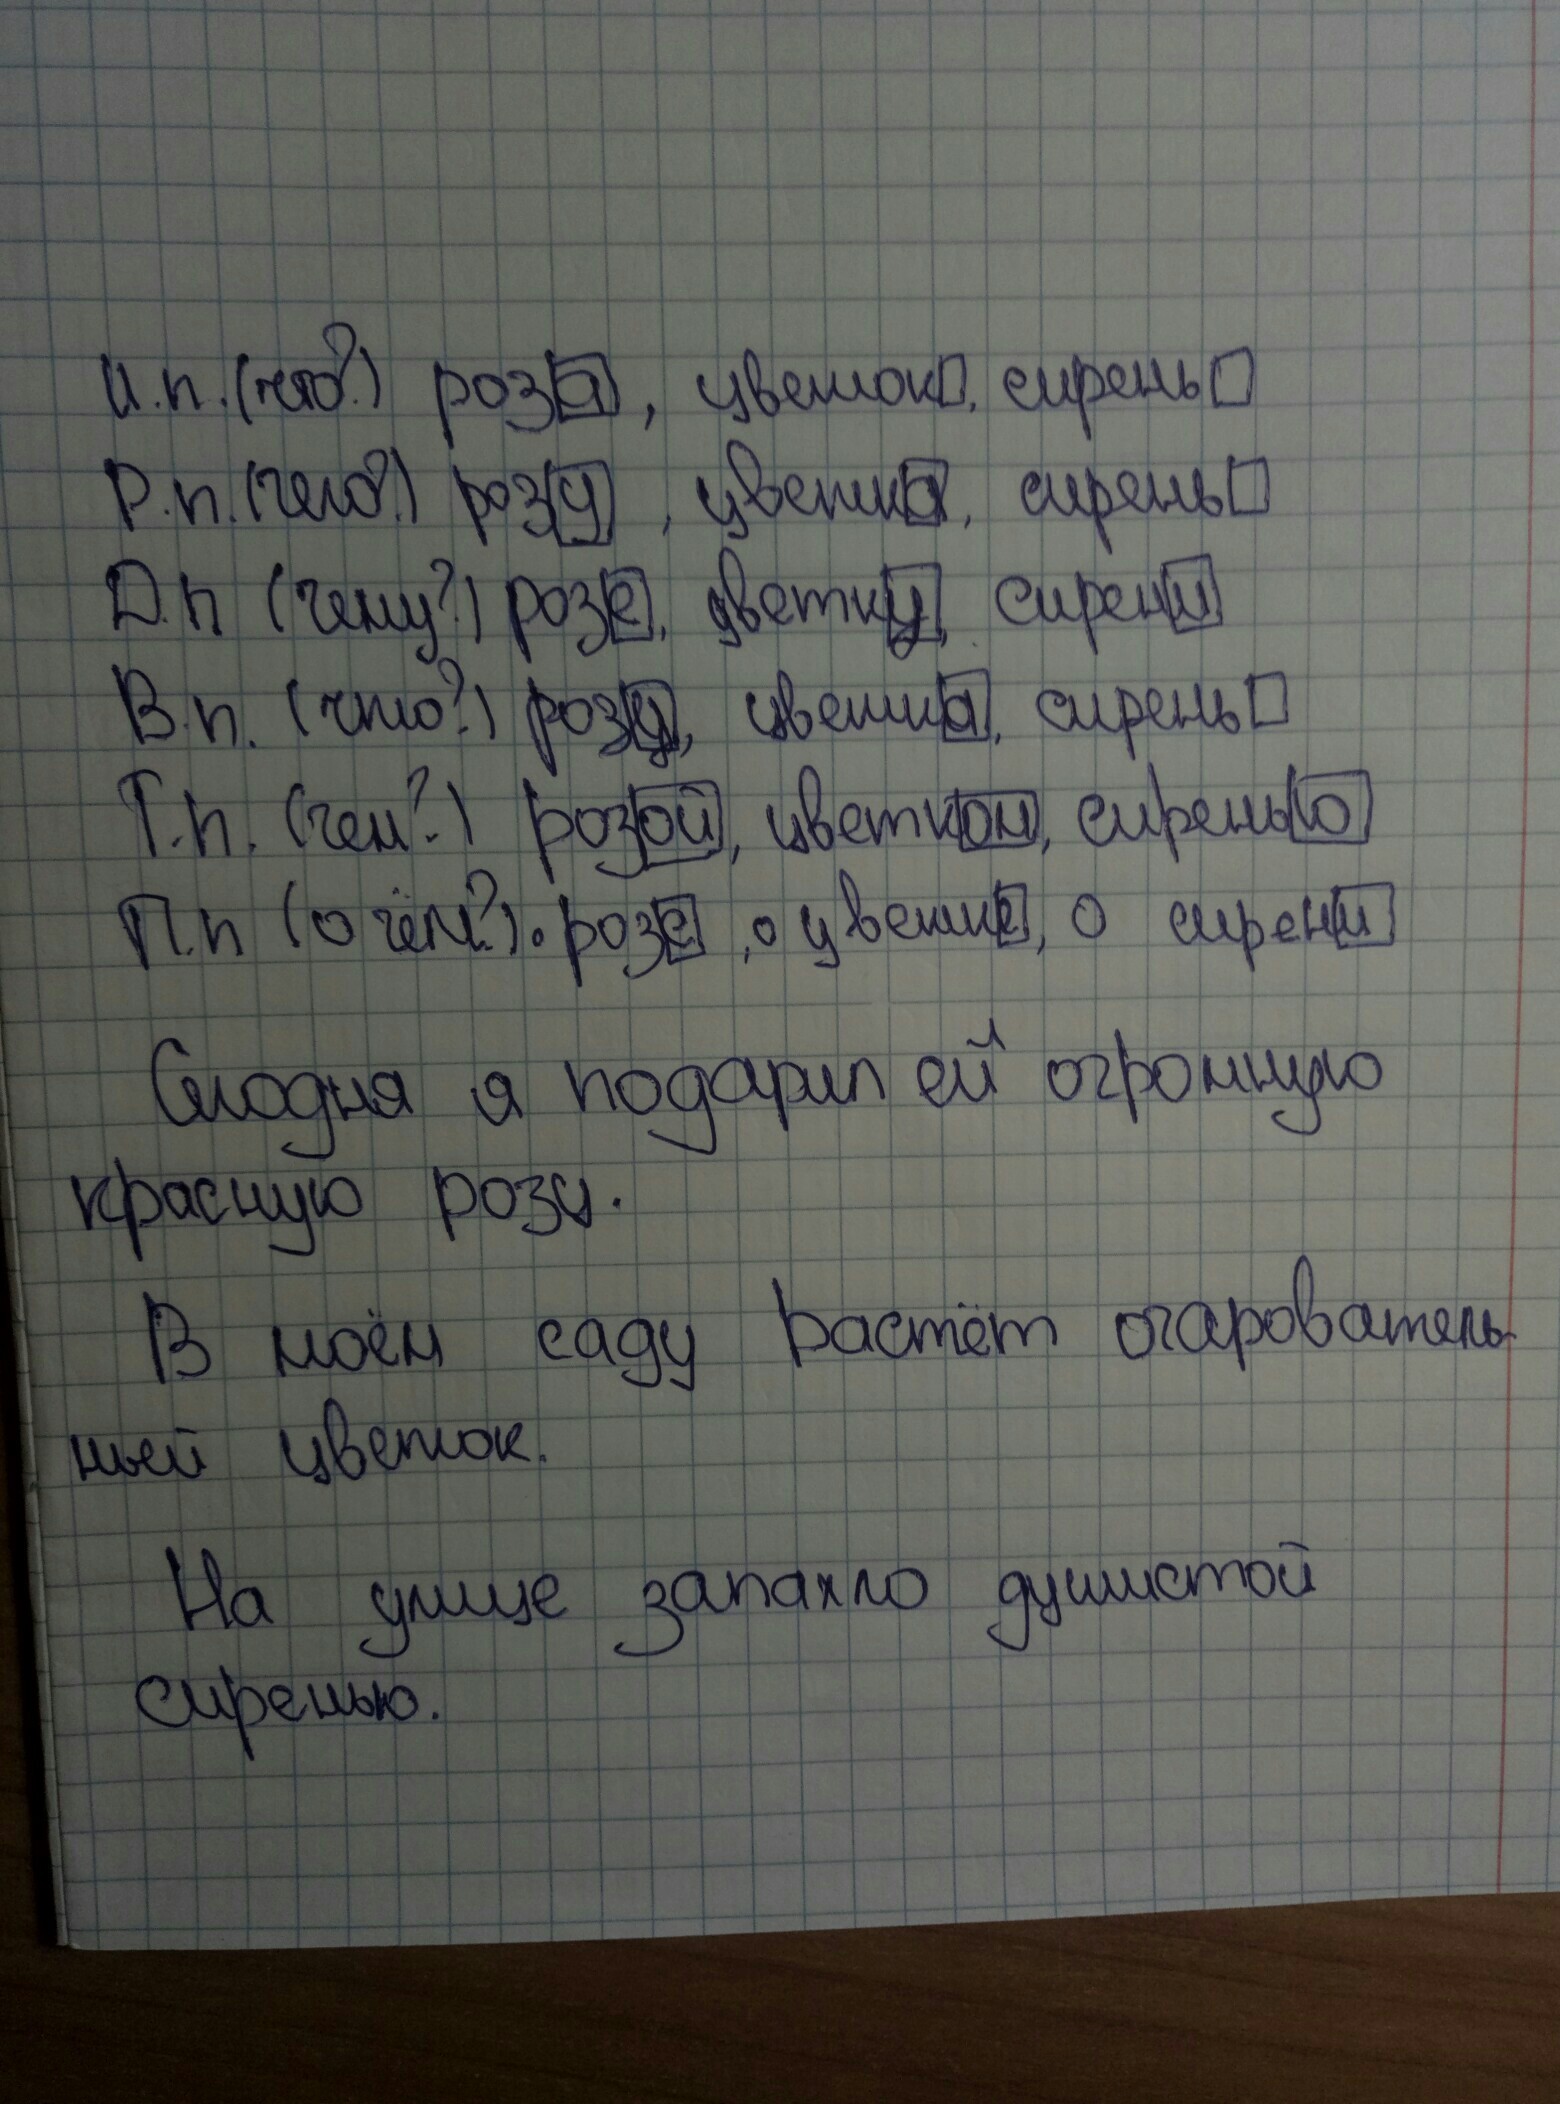 И.п. (что?) роза, цветок, сирень
Р.п. (чего?) розу, цветка, сирень
Д.п (чему?) розе, цветку, сирени
В.п. (что?) розу, цветка, сирень
Т.п. (чем?) розой, цветком, сиренью
П.п (о чём?) о розе, о цветке, о сирени
Сегодня я подарил ей огромную
красную розу.
В моём саду растёт очарователь-
ный цветок.
На улице запахло душистой
сиренью.